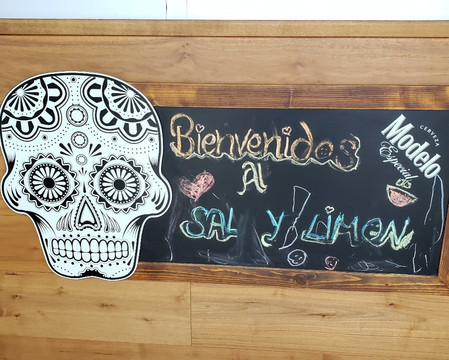 Bienvenidos
Al
SAL Y LIMON
CERVEZA
Modelo
Especial